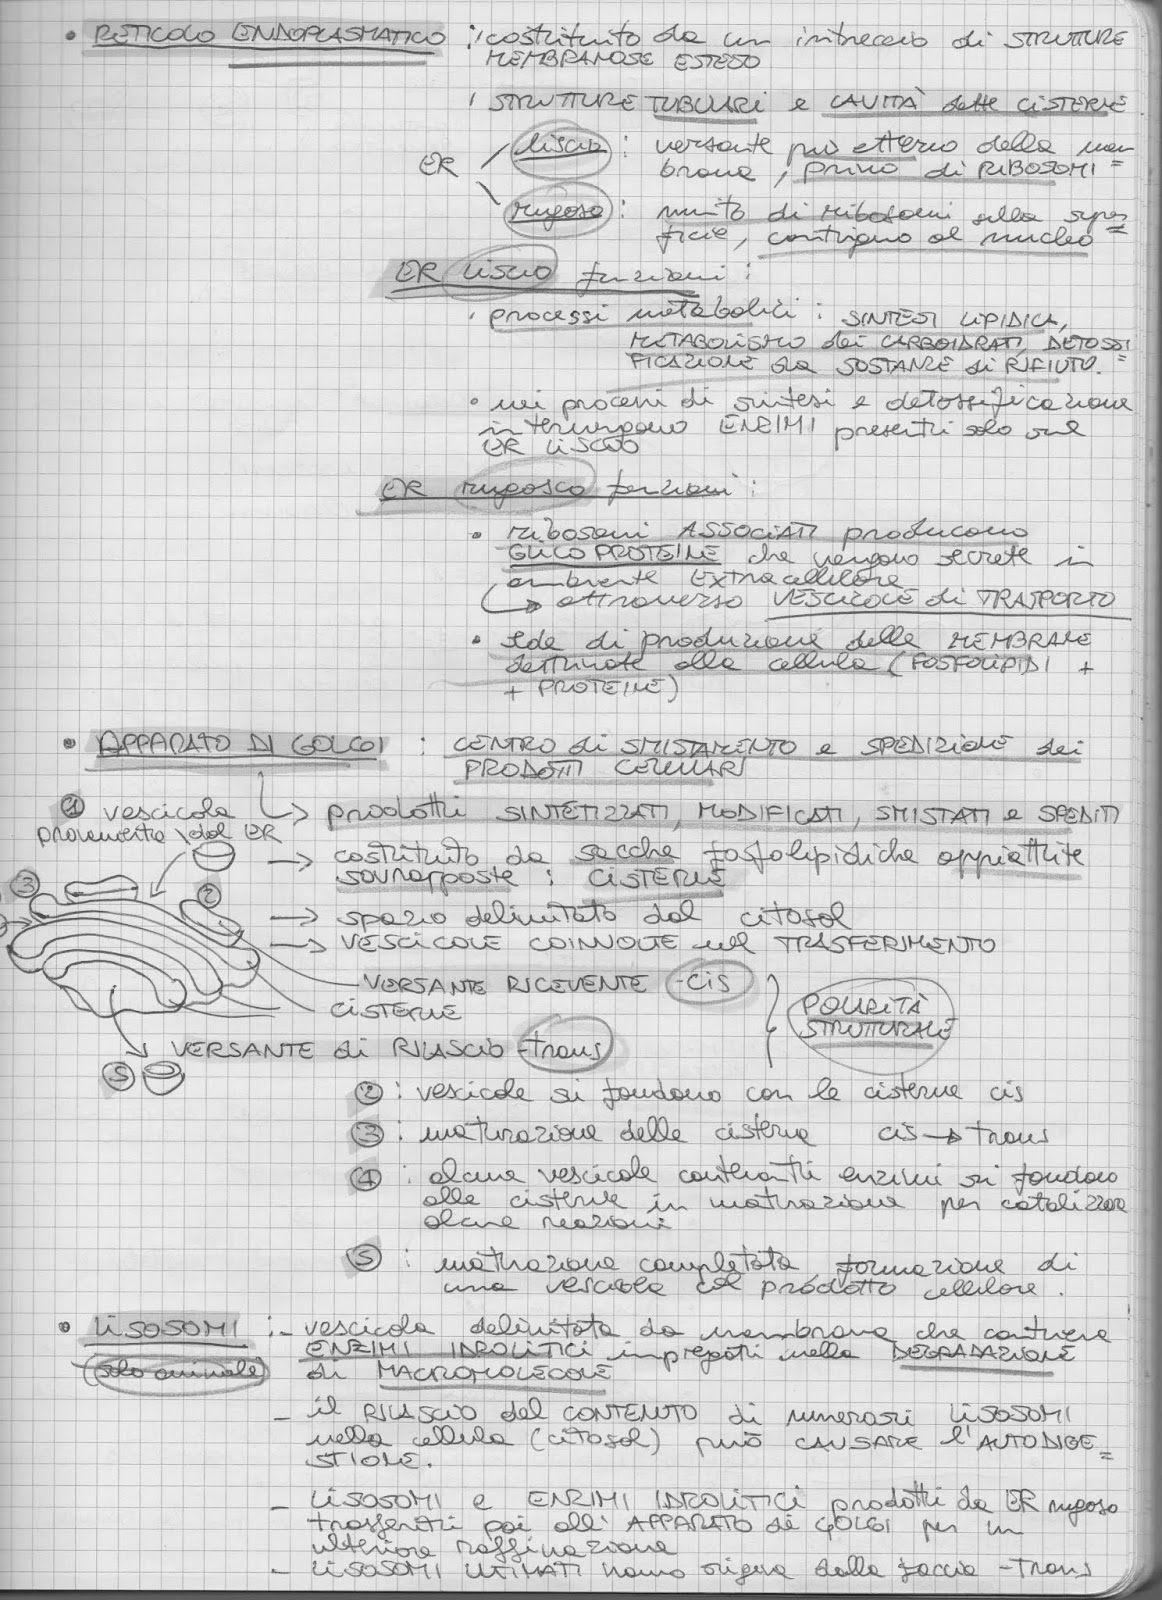 • RETICOLO ENDOPLASMATICO : costituito da un intreccio di STRUTTURE
MEMBRANOSE ESTESO
STRUTTURE TUBULARI e CAVITÀ dette CISTERNE
ER liscio : versante più esterno della mem=
brana, privo di RIBOSOMI
rugoso : munito di ribosomi sulla super=
ficie, contiguo al nucleo
ER LISCIO funzioni :
processi metabolici : SINTESI LIPIDICA,
METABOLISMO dei CARBOIDRATI, DETOSSI=
FICAZIONE da SOSTANZE di RIFIUTO.
• nei processi di sintesi e detossificazione
intervengono ENZIMI presenti solo sul
ER LISCIO
ER rugoso funzioni :
• ribosomi ASSOCIATI producono
GLICOPROTEINE che vengono secrete in
ambiente EXTRACELLULARE
↳ attraverso VESCICOLE di TRASPORTO
• sede di produzione delle MEMBRANE
destinate alla cellula (FOSFOLIPIDI +
+ PROTEINE)
• APPARATO DI GOLGI : CENTRO di SMISTAMENTO e SPEDIZIONE dei
PRODOTTI CELLULARI
↳ prodotti SINTETIZZATI, MODIFICATI, SMISTATI e SPEDITI
① vescicola
proveniente dal ER
→ costituito da sacche fosfolipidiche appiattite
sovrapposte : CISTERNE
③
②
→ spazio delimitato dal citosol
→ VESCICOLE COINVOLTE nel TRASFERIMENTO
VERSANTE RICEVENTE -cis
CISTERNE
POLARITÀ
STRUTTURALE
VERSANTE di RILASCIO -trans
⑤
② : vescicole si fondono con le cisterne cis
③ : maturazione delle cisterne cis → trans
④ : alcune vescicole contenenti enzimi si fondono
alle cisterne in maturazione per catalizzare
alcune reazioni
⑤ : maturazione completata, formazione di
una vescicola col prodotto cellulare.
• LISOSOMI :- vescicola delimitata da membrana che contiene
ENZIMI IDROLITICI impiegati nella DEGRADAZIONE
(solo animale) di MACROMOLECOLE
- il RILASCIO del CONTENUTO di numerosi LISOSOMI
nella cellula (citosol) può CAUSARE l'AUTODIGE=
STIONE.
- LISOSOMI e ENZIMI IDROLITICI prodotti da ER rugoso
trasferiti poi all'APPARATO di GOLGI per un
ulteriore raffinazione
- LISOSOMI ULTIMATI hanno origine dalla faccia -trans